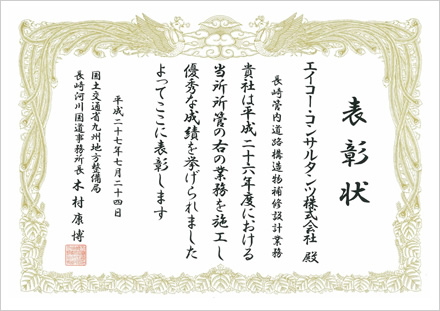 表彰状
エイコー・コンサルタンツ株式会社 殿
長崎管内道路構造物補修設計業務
貴社は平成二十六年度における
当所所管の右の業務を施工し
優秀な成績を挙げられました
よってここに表彰します
平成二十七年七月二十四日
国土交通省九州地方整備局
長崎河川国道事務所長 木村康博